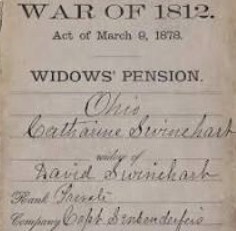 WAR OF 1812.
Act of March 9, 1878.
WIDOWS' PENSION.
Ohio
Catharine Swinehart
widow of
David Swinehart
Rank Private
Company Capt.